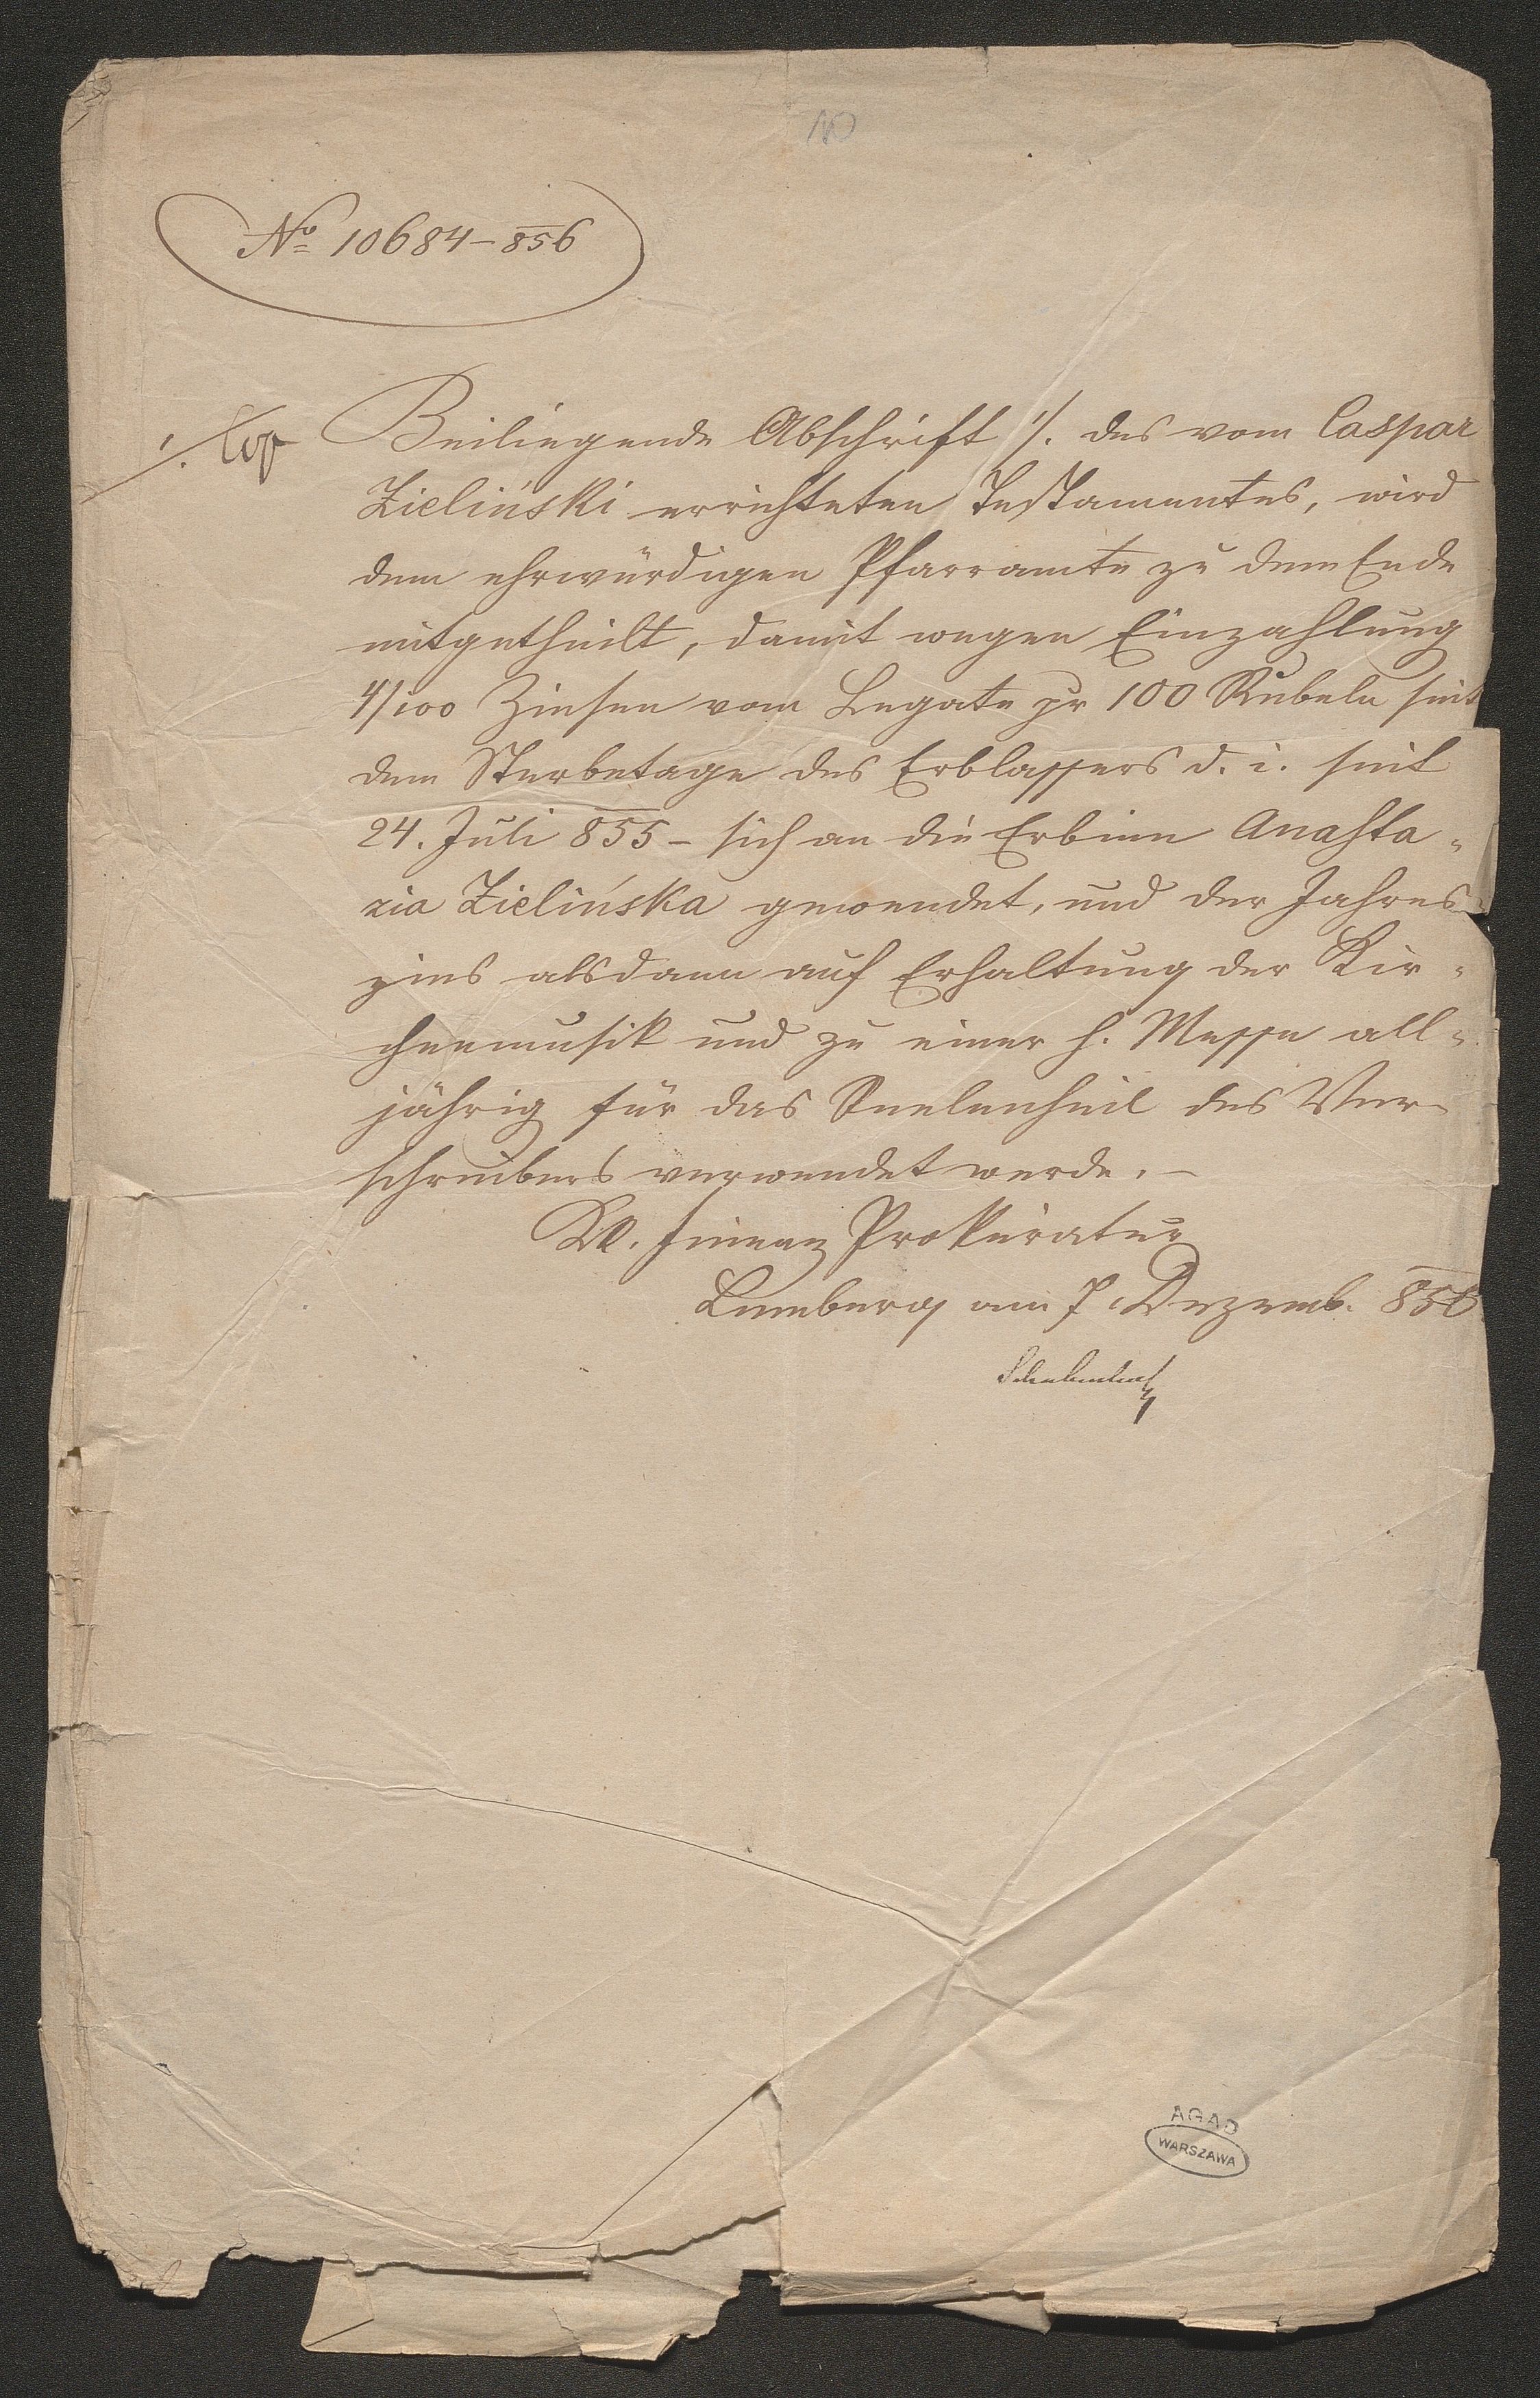 10
No 10684–856
1/. Cop Beiliegende Abschrift 1/. des vom Caspar
Zieliński errichteten Testamentes, wird
dem ehrwürdigen Pfarramte zu dem Ende
mitgetheilt, damit wegen Einzahlung
4/100 Zinsen vom Legate pr 100 Rubeln seit
dem Sterbetage des Erblassers d. i. seit
24. Juli 855 – sich an die Erbinn Anasta-
zia Zielińska gewendet, und der Jahres-
zins alsdann auf Erhaltung der Kir-
chenmusik und zu einer h. Messe all-
jährig für das Seelenheil des Ver-
schreibers verwendet werde. –
KK. Finanz Prokuratur
Lemberg am 7 Dezemb. 856
AGAD
WARSZAWA